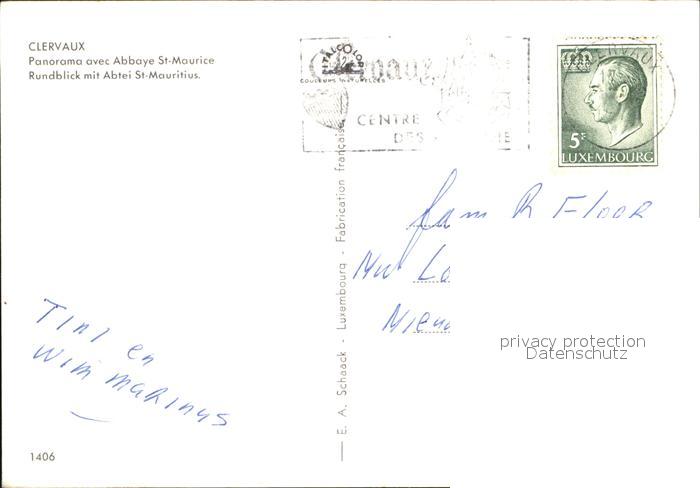 CLERVAUX
Panorama avec Abbaye St-Maurice
Rundblick mit Abtei St-Mauritius.
ITALCOLOR
COULEURS NATURELLES
Clervaux
CENTRE
DES
CLERVAUX
5F
LUXEMBOURG
E. A. Schaack - Luxembourg - Fabrication française
fam R Floor
Nw
Tini en
Wim Marinus
privacy protection
Datenschutz
1406